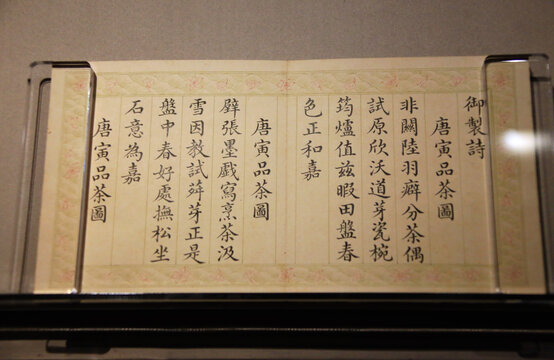 御製詩
唐寅品茶圖
非關陸羽癖分茶偶
試原欣沃道芽瓷椀
筠爐值茲暇田盤春
色正和嘉
唐寅品茶圖
驛張墨戲寫烹茶汲
雪因教試莽芽正是
盤中春好處撫松坐
石意為嘉
唐寅品茶圖